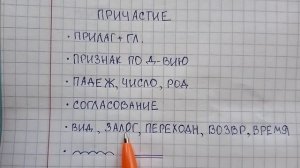 ПРИЧАСТИЕ
· ПРИЛАГ + ГЛ.
· ПРИЗНАК ПО Д-ВИЮ
· ПАДЕЖ, ЧИСЛО, РОД
· СОГЛАСОВАНИЕ
· ВИД, ЗАЛОГ, ПЕРЕХОДН, ВОЗВР, ВРЕМЯ